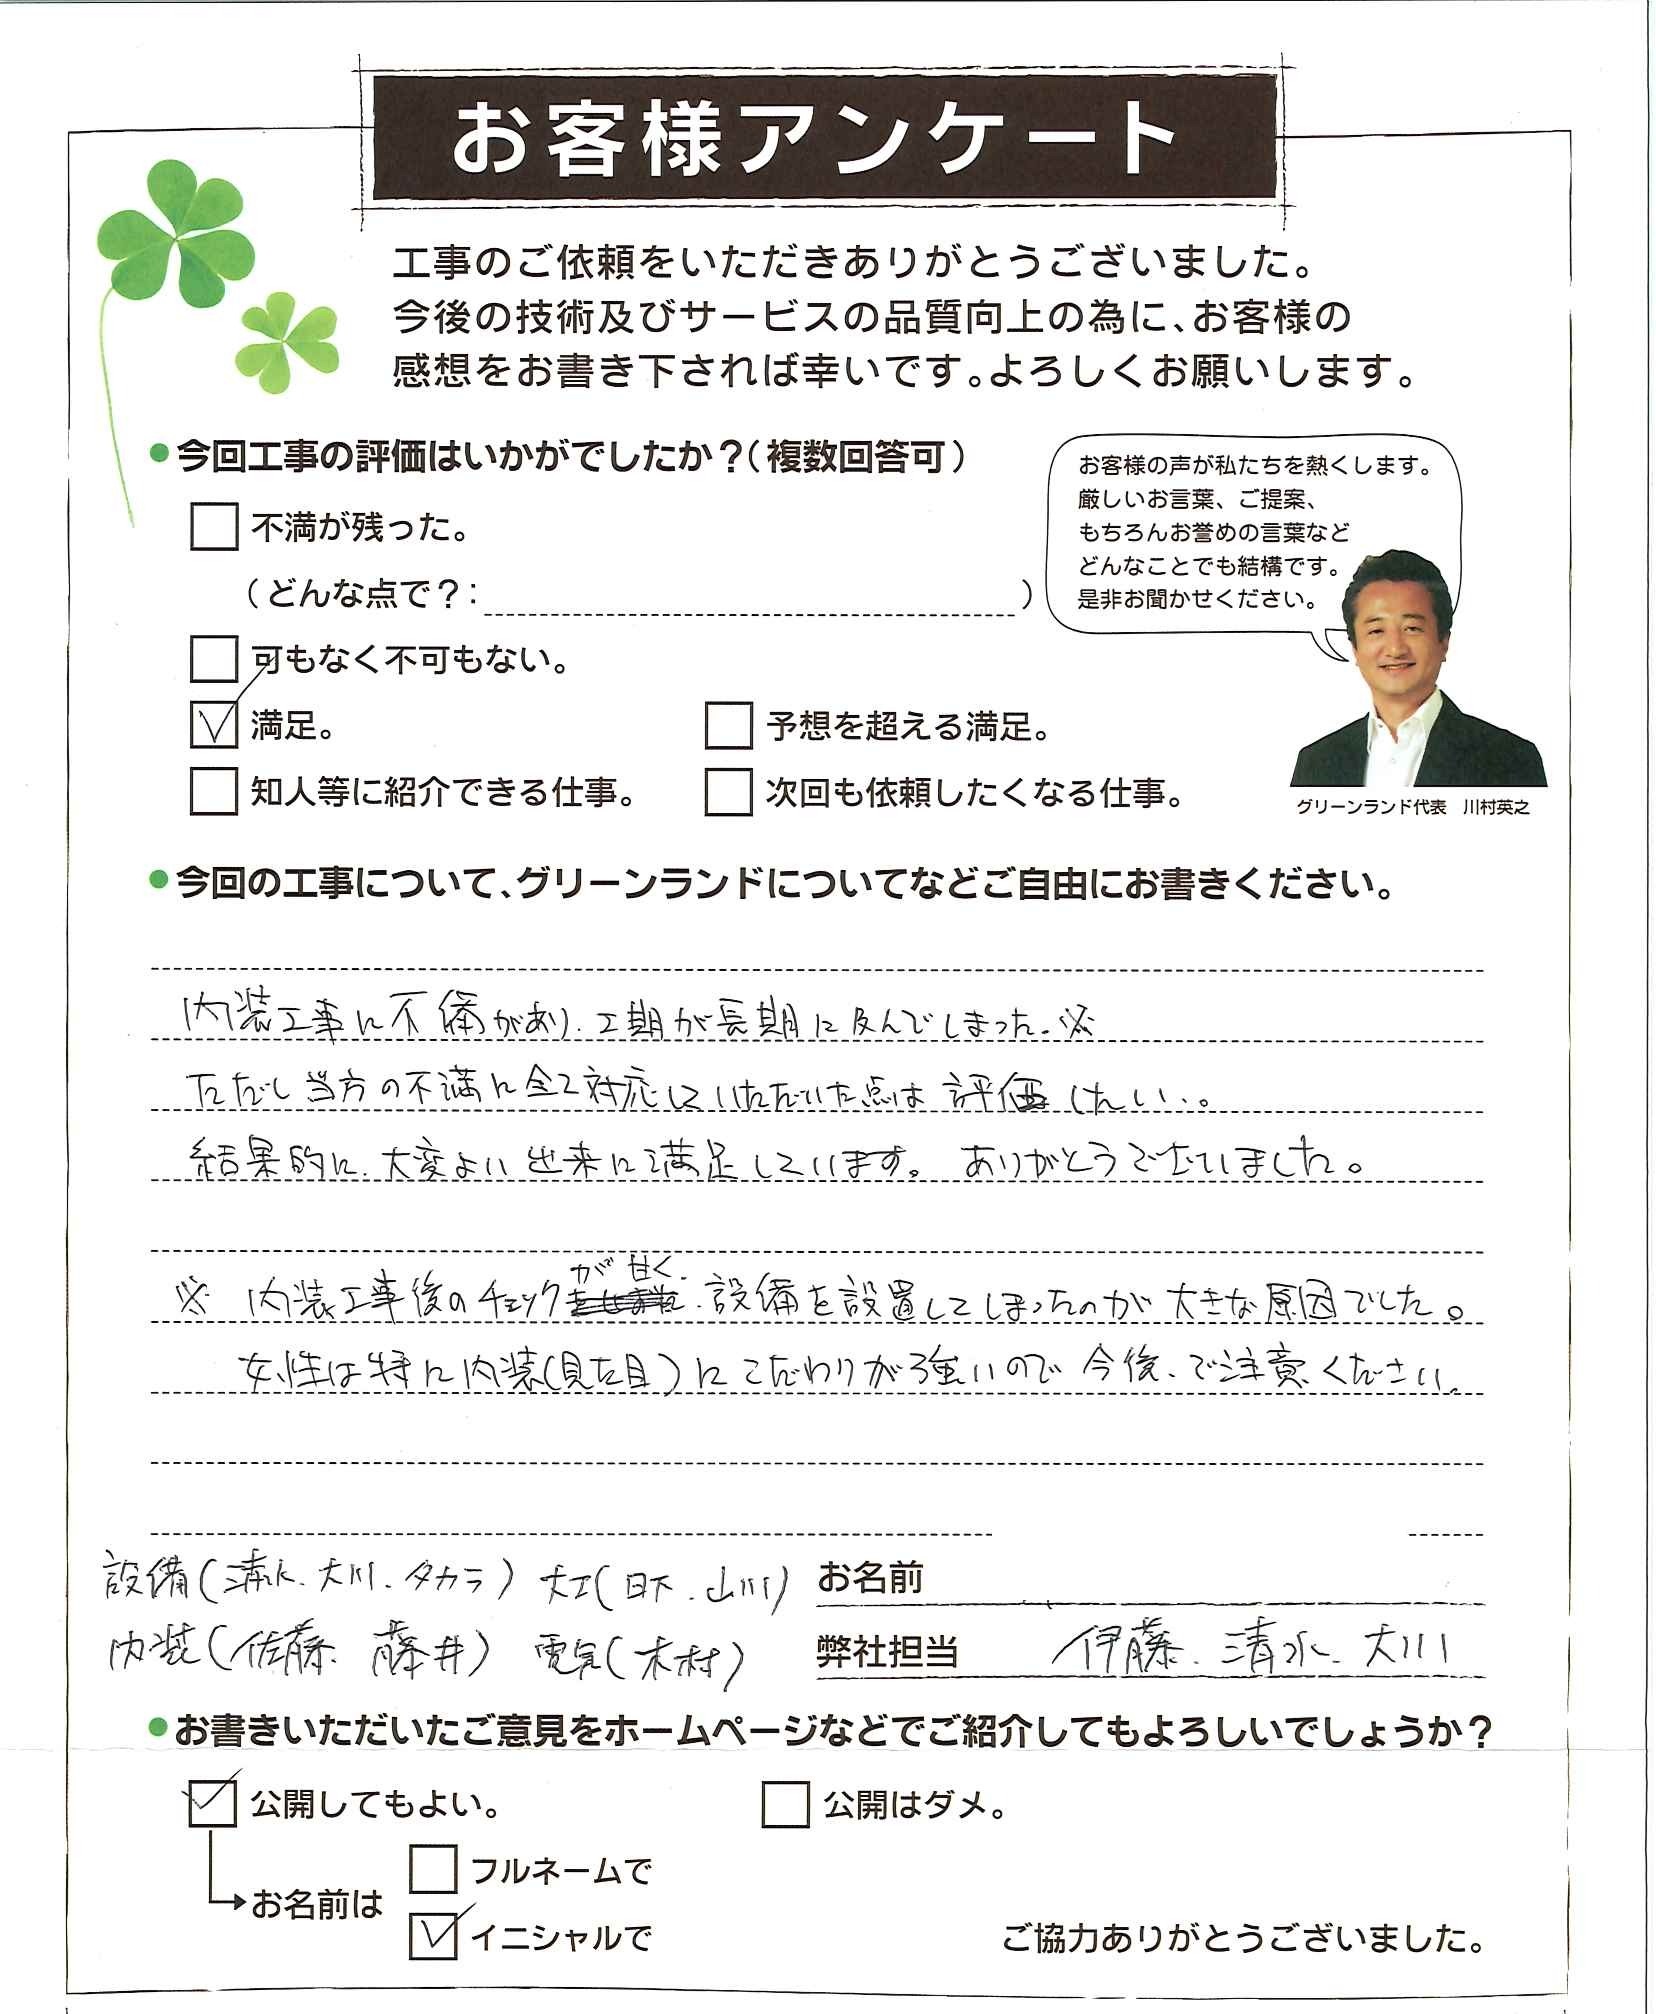 お客様アンケート
工事のご依頼をいただきありがとうございました。
今後の技術及びサービスの品質向上の為に、お客様の
感想をお書き下されば幸いです。よろしくお願いします。
●今回工事の評価はいかがでしたか？（複数回答可）
お客様の声が私たちを熱くします。
厳しいお言葉、ご提案、
もちろんお誉めの言葉など
どんなことでも結構です。
是非お聞かせください。
グリーンランド代表　川村英之
不満が残った。
（どんな点で？：　）
可もなく不可もない。
満足。　予想を超える満足。
知人等に紹介できる仕事。　次回も依頼したくなる仕事。
●今回の工事について、グリーンランドについてなどご自由にお書きください。
内装工事に不備があり、工期が長期に及んでしまった。※
ただし当方の不満に全て対応していただいた点は評価したい。
結果的に、大変よい出来に満足しています。ありがとうございました。
※ 内装工事後のチェックが甘く、設備を設置してしまったのが大きな原因でした。
女性は特に内装(見た目)にこだわりが強いので今後、ご注意ください。
設備(清水、大川、タカラ) 大工(日下、山川) お名前
内装(佐藤、藤井) 電気(木村) 弊社担当 伊藤、清水、大川
●お書きいただいたご意見をホームページなどでご紹介してもよろしいでしょうか？
公開してもよい。　公開はダメ。
フルネームで
お名前は
イニシャルで
ご協力ありがとうございました。